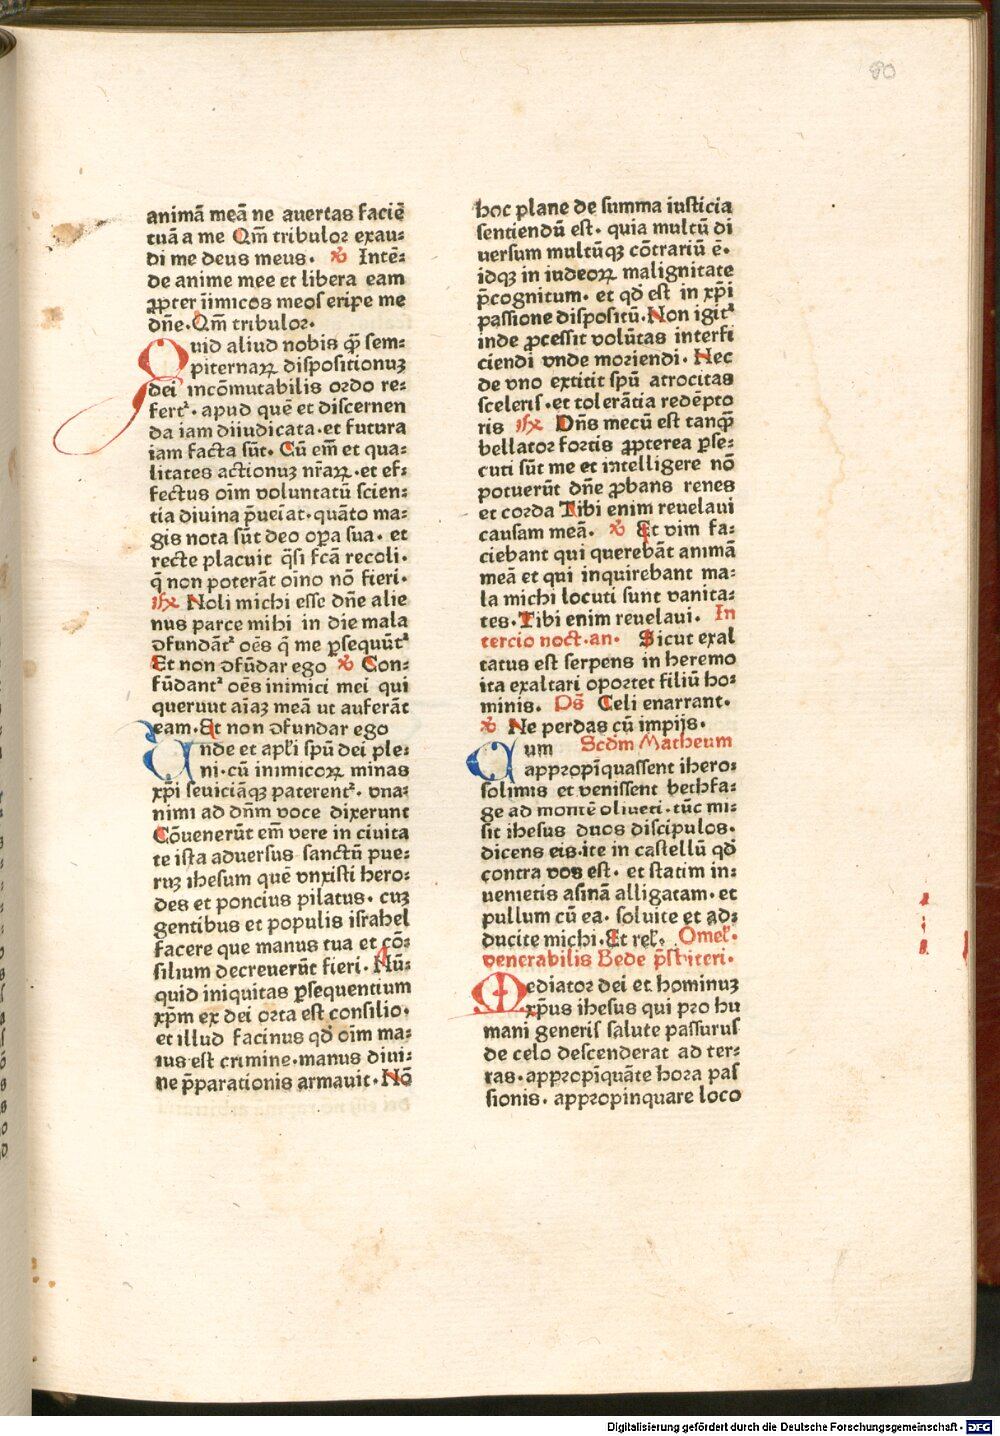 80
animā meā ne auertas faciē
tuā a me Qm̄ tribulor exau⸗
di me deus meus. ꝟ Intē⸗
de anime mee et libera eam
ꝓpter iimicos meos eripe me
dn̄e. Qm̄ tribulor.
Quid aliud nobis ꝙ̄ sem⸗
piternaꝝ dispositionuꝫ
dei incōmutabilis ordo re⸗
fertᷣ. apud quē et discernen
da iam diiudicata. et futura
iam facta sūt. Cū em̄ et qua⸗
litates actionuꝫ nr̄aꝝ. et ef⸗
fectus oīm voluntatū scien⸗
tia diuina p̄ueīat. quāto ma⸗
gis nota sūt deo oꝑa sua. et
recte placuit q̄si fcā recoli.
q̄ non poterāt oīno nō fieri.
℟ Noli michi esse dn̄e alie
nus parce mihi in die mala
ↄfundātᷣ oēs q̄ me ꝑsequūtᷣ
Et non ↄfūdar ego ꝟ Con⸗
fūdantᷣ oēs inimici mei qui
querunt aīaꝫ meā ut auferāt
eam. Et non ↄfundar ego
Unde et apl̄i spū dei ple⸗
ni. cū inimicoꝝ minas
xp̄i seuiciāqꝫ paterentᷣ. vna⸗
nimi ad dn̄m voce dixerunt
Cōuenerūt em̄ vere in ciuita
te ista aduersus sanctū pue⸗
ruꝫ ihesum quē vnxisti hero⸗
des et poncius pilatus. cuꝫ
gentibus et populis israhel
facere que manus tua et cō⸗
silium decreuerūt fieri. Nū⸗
quid iniquitas ꝑsequentium
xp̄m ex dei orta est consilio.
et illud facinus qd̄ oīm ma⸗
ius est crimine. manus diui⸗
ne p̄parationis armauit. Nō
hoc plane de summa iusticia
sentiendū est. quia multū di
uersum multūqꝫ cōtrariū ē.
idqꝫ in iudeoꝝ malignitate
p̄cognitum. et qd̄ est in xp̄i
passione dispositū. Non igitᷣ
inde ꝓcessit volūtas interfi
ciendi vnde moriendi. Nec
de vno extitit spū atrocitas
sceleris. et tolerātia redēpto
ris ℟ Dn̄s mecū est tanꝙ̄
bellator fortis ꝓpterea ꝑse⸗
cuti sūt me et intelligere nō
potuerūt dn̄e ꝓbans renes
et corda Tibi enim reuelaui
causam meā. ꝟ Et vim fa⸗
ciebant qui querebāt animā
meā et qui inquirebant ma⸗
la michi locuti sunt vanita⸗
tes. Tibi enim reuelaui. In
tercio noct. an. Sicut exal
tatus est serpens in heremo
ita exaltari oportet filiū ho⸗
minis. Ps̄ Celi enarrant.
ꝟ Ne perdas cū impijs.
Cum Scd̄m Matheum
appropīquassent ihero⸗
solimis et venissent bethfa⸗
ge ad montē oliueti. tūc mi⸗
sit ihesus duos discipulos.
dicens eis. ite in castellū qd̄
contra vos est. et statim in⸗
uenietis asinā alligatam. et
pullum cū ea. soluite et ad⸗
ducite michi. Et rel̄. Omel̄.
venerabilis Bede p̄sbiteri.
Mediator dei et hominuꝫ
xp̄us ihesus qui pro hu
mani generis salute passurus
de celo descenderat ad ter⸗
ras. appropīquāte hora pas
sionis. appropinquare loco
Digitalisierung gefördert durch die Deutsche Forschungsgemeinschaft - DFG